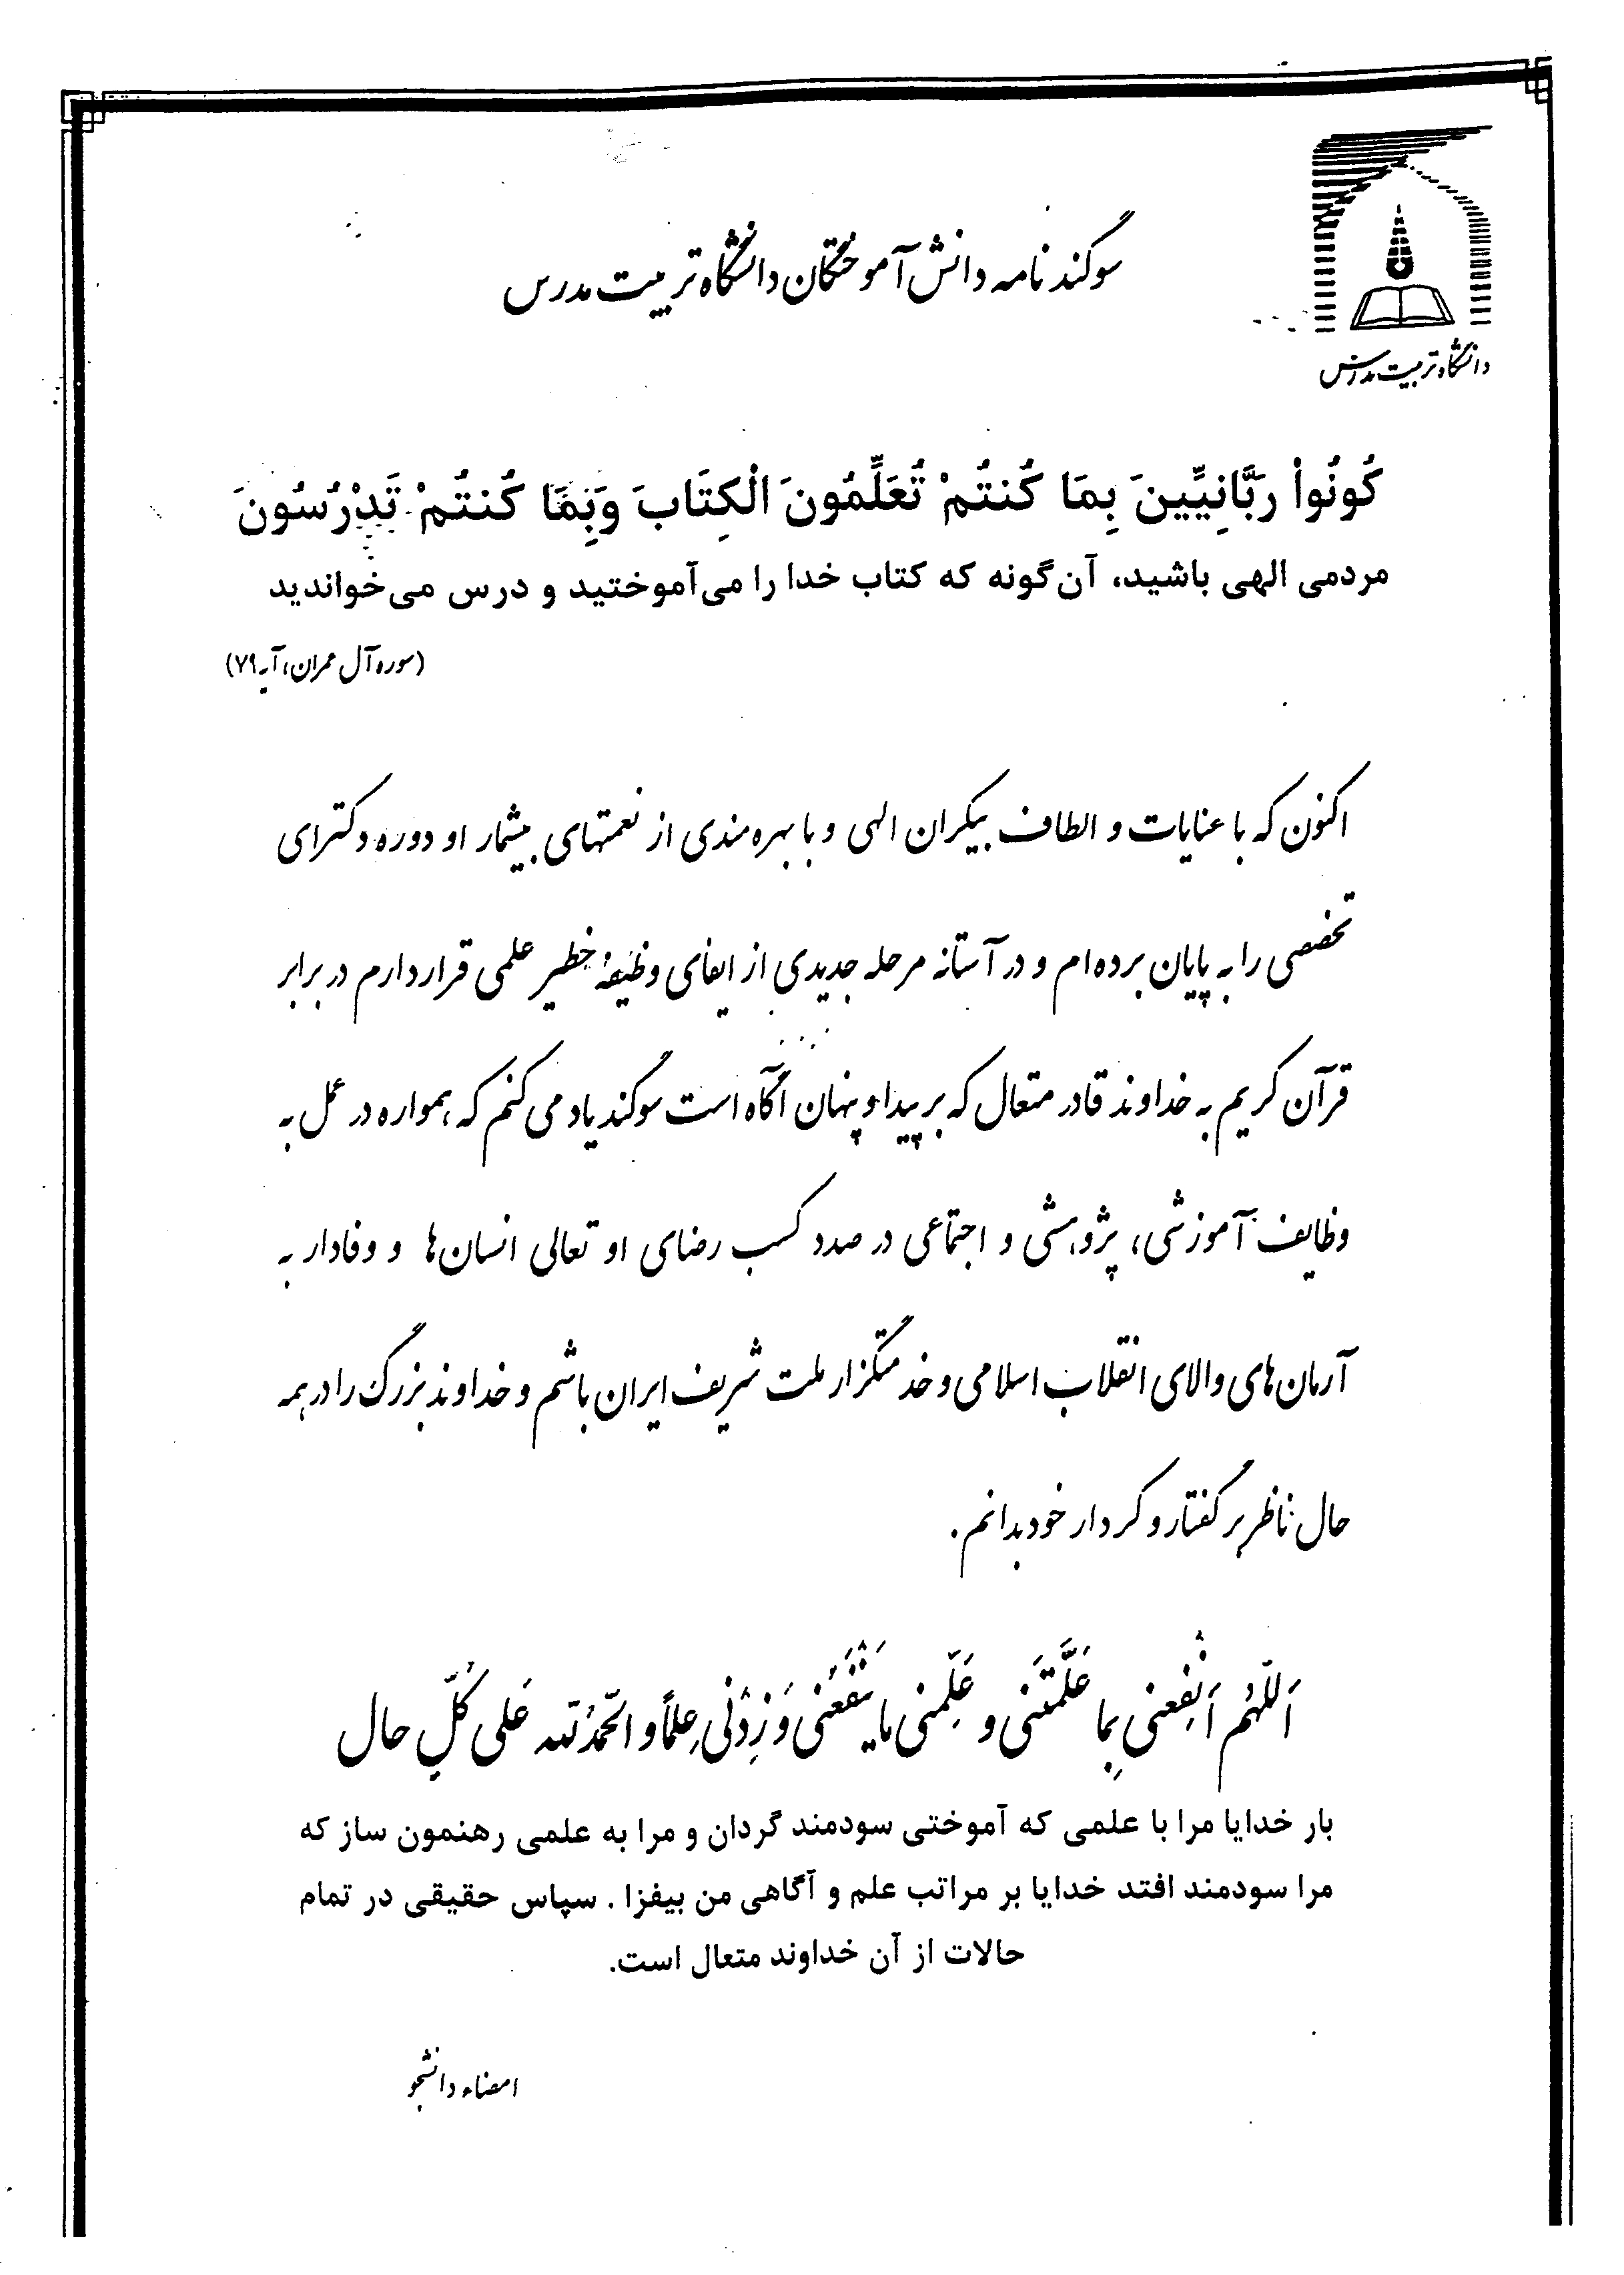 سوگند نامه دانش آموختگان دانشگاه تربیت مدرس
دانشگاه تربیت مدرس
كُونُواْ رَبَّانِيِّينَ بِمَا كُنتُمْ تُعَلِّمُونَ الْكِتَابَ وَبِمَا كُنتُمْ تَدْرُسُونَ
مردمی الهی باشید، آن‌گونه که کتاب خدا را می‌آموختید و درس می‌خواندید
(سوره آل عمران، آیه ۷۹)
اکنون که با عنایات و الطاف بیکران الهی و با بهره‌مندی از نعمتهای بیشمار او دوره دکترای
تخصصی را به پایان برده‌ام و در آستانه مرحله جدیدی از ایفای وظیفهٔ خطیر علمی قرار دارم در برابر
قرآن کریم به خداوند قادر متعال که بر پیدا و پنهان آگاه است سوگند یاد می‌کنم که همواره در عمل به
وظایف آموزشی، پژوهشی و اجتماعی در صدد کسب رضای او تعالی انسان‌ها و وفادار به
آرمان‌های والای انقلاب اسلامی و خدمتگزار ملت شریف ایران باشم و خداوند بزرگ را در همه
حال ناظر بر گفتار و کردار خود بدانم.
اَللّهُم اَنْفِعنی بِما عَلَّمتَنی و عَلِّمنی ما یَنْفَعُنی وَ زِدْنی عِلماً و الحَمدُ لله عَلی کُلِّ حال
بار خدایا مرا با علمی که آموختی سودمند گردان و مرا به علمی رهنمون ساز که
مرا سودمند افتد خدایا بر مراتب علم و آگاهی من بیفزا . سپاس حقیقی در تمام
حالات از آن خداوند متعال است.
امضاء دانشجو